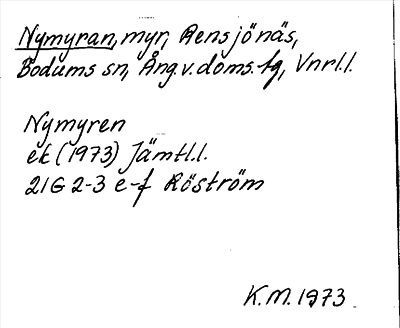 Nymyran, myr, Rensjönäs,
Bodums sn, Ång.v.doms.fg, Vnrl.l.
Nymyren
ek (1973) Jämtl.l.
21G 2-3 e-f Röström
K.M. 1973